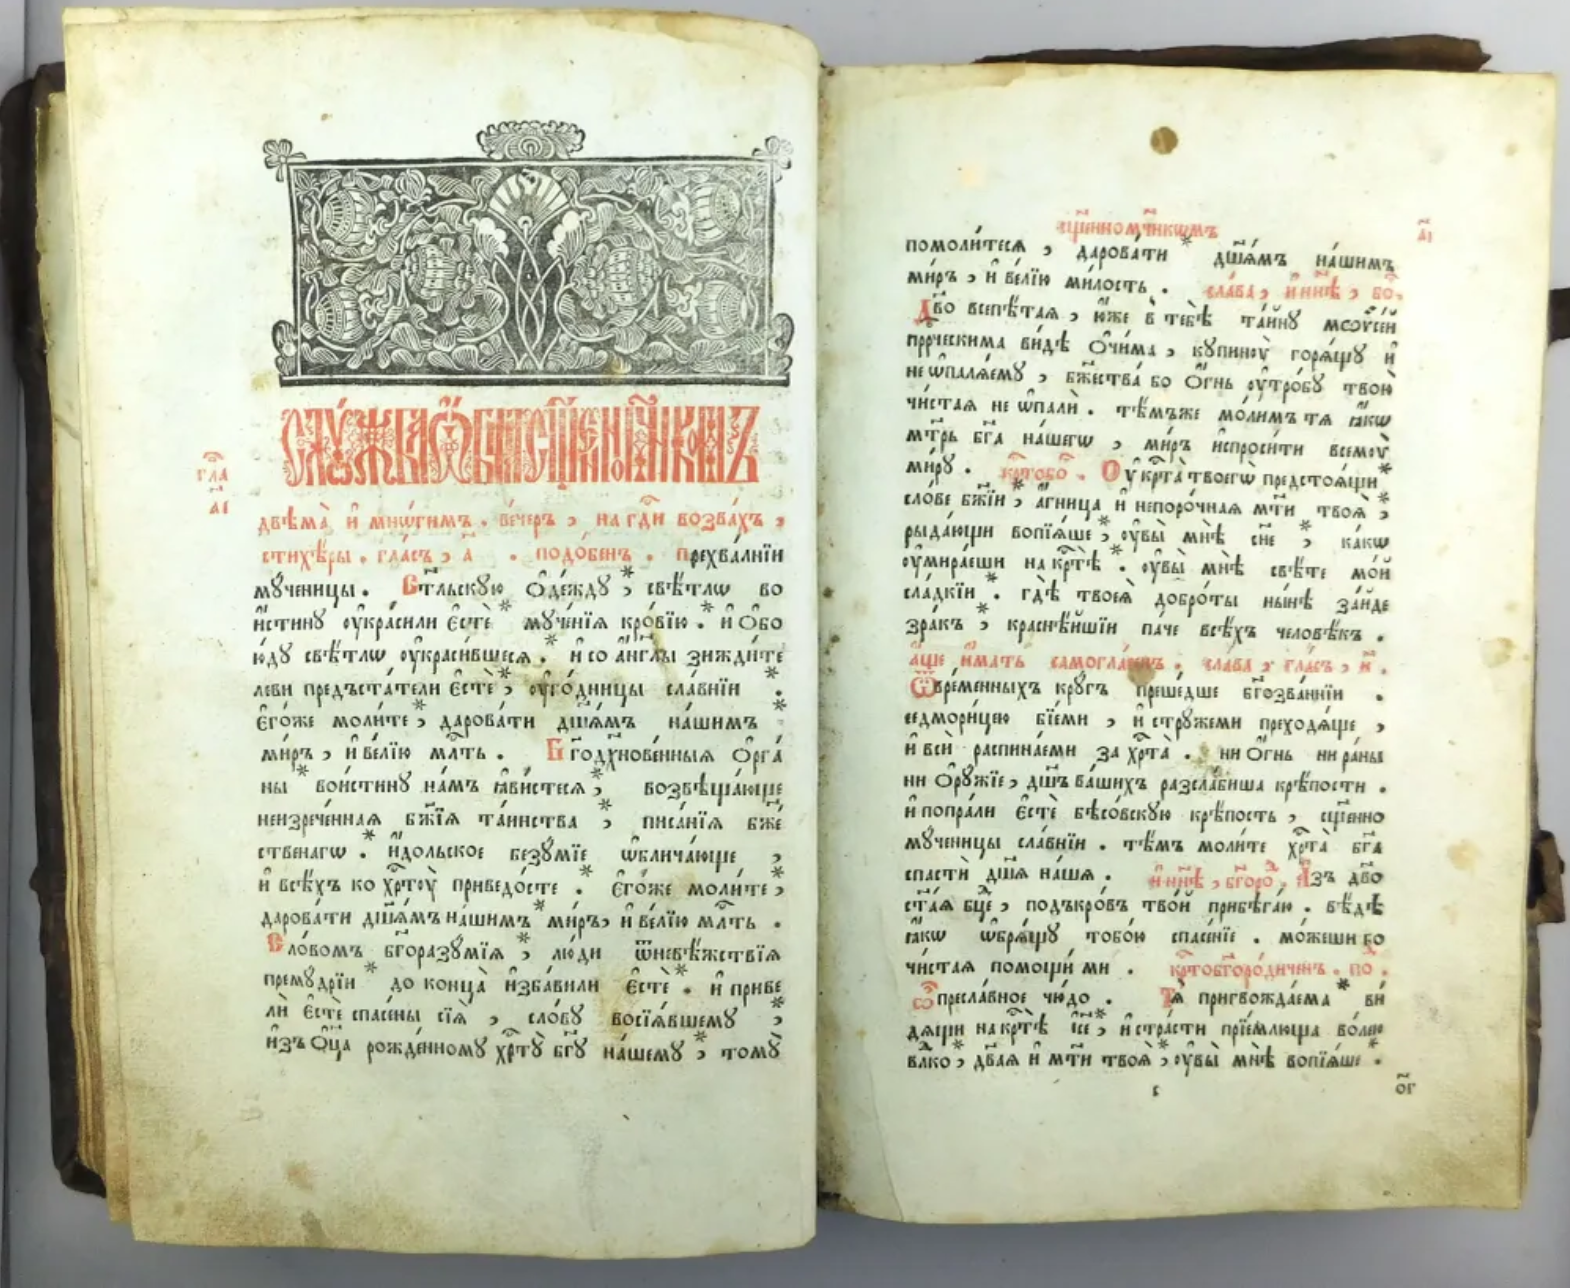 слꙋ́жба ѻ҆́бщаѧ сщ҃е́нномч҃нкѡмъ
гла҃
а҃і
двѣма̀ и҆ мнѡ́гимъ . ве́черъ , на гд҇и возва́хъ ,
стихѣ́ры . гла́съ , а҃ . подо́бенъ . прехва́лнїи
мꙋ́ченицы . Ст҃льскую ѻ҆де́ждꙋ * , свѣ́тлѡ во
и҆́стинꙋ оу҆кра́сили є҆стѐ * мꙋче́нїѧ кро́вїю . * и ѻ҆бо
ю́дꙋ свѣ́тлѡ оу҆кра́сившесѧ . * и҆ со а҆́нг҃лы зижди́те
леви предъста́тели є҆стѐ * , оу҆го́дницы сла́внїи * .
є҆го́же моли́те * , дарова́ти дш҃а́мъ на́шимъ *
ми́ръ , и҆ ве́лїю мл҇ть . Бг҃одх҃нове́нныѧ ѻ҆рга́
ны * вои́стинꙋ на́мъ ꙗ҆ви́стесѧ * , возвѣща́юще
неизрече́ннаѧ бж҃їѧ та́инства * , писа́нїѧ бж҃е́
ственагѡ . * и҆́дольское безꙋ́мїе ѡ҆блича́юще ,
и҆ всѣ́хъ ко хр҇тоу̀ приведо́сте * . є҆го́же моли́те * ,
дарова́ти дш҃а́мъ на́шимъ * ми́ръ , и҆ ве́лїю мл҇ть .
Сло́вомъ бг҃оразꙋ́мїѧ * , лю́ди ѿневѣ́жствїѧ
премꙋ́дрїи * до конца̀ и҆зба́вили є҆стѐ * . и҆ приве
лѝ є҆стѐ спасе́ны сїѧ̀ , сло́вꙋ возсїѧ́вшемꙋ * ,
и҆зъ ѻ҆ц҃а рожде́нномꙋ хр҇тꙋ̀ бг҃ꙋ на́шемꙋ * , томꙋ̀
сщ҃е́нномч҃нкѡмъ
а҃і
помоли́тесѧ , дарова́ти * дш҃а́мъ на́шимъ
ми́ръ , и҆ ве́лїю ми́лость . сла́ва , и҆ нн҃ѣ , бо҇ .
Дв҃о всепѣ́таѧ , ю҆́же в̾ тебѣ̀ та́йнꙋ мѡѷсе́й
прⷪ҇ро́ческима ви́дѣ ѻ҆чи́ма , кꙋпиноу̀ горѧ́щꙋ и҆
не ѡ҆палѧ́емꙋ , бж҃ества́ бо ѻ҆́гнь оу҆тро́бꙋ твою̀
чи́стаѧ не ѡ҆палѝ . тѣ́мъже мо́лимъ тѧ ꙗ҆́кѡ
мт҃рь бг҃а на́шегѡ , ми́ръ и҆спроси́ти всемоу̀
ми́рꙋ . кр҇тобо҇ . Оу҆ кр҇та̀ твоегѡ̀ предстоѧ́щи *
сло́ве бж҃їи * , а҆́гница и҆ непоро́чнаѧ мт҃и твоѧ̀ * ,
рыда́ющи вопїѧ́ше * , оу҆вы̀ мнѣ̀ сн҃е * , ка́кѡ
оу҆мира́еши на кр҇тѣ̀ * . оу҆вы̀ мнѣ̀ свѣ́те мо́й
сла́дкїи * . гдѣ̀ твоеѧ̀ добро́ты ны́нѣ за́йде
зра́къ * , краснѣ́йшїи па́че всѣ́хъ человѣ́къ .
а҆́ще и҆́мать самогла́сенъ . сла́ва , гла́съ , и҃ .
Ѿвре́менныхъ крꙋ́гъ преше́дше бг҃озва́ннїи .
седмори́цею бїе́ми , и҆ стрꙋже́ми преходѧ́ще ,
и҆ всѝ распина́еми за хр҇та̀ . ни ѻ҆́гнь ни ра́ны
ни ѻ҆рꙋ́жїе , дш҃ъ ва́шихъ разсла́биша крѣ́пости .
и҆ попра́ли є҆стѐ бѣсо́вскую крѣ́пость , сщ҃е́нно
мꙋ́ченицы сла́внїи . тѣ́мъ моли́те хр҇та̀ бг҃а
спастѝ дш҃а на́ша . и҆ нн҃ѣ , бг҃оро҇ . А҆́зъ дв҃о
ст҃а́ѧ бц҃е , подъкро́въ тво́й прибѣга́ю . вѣ́дѣ
ꙗ҆́кѡ ѡ҆брѧ́щꙋ тобо́ю спасе́нїе . мо́жеши бо
чи́стаѧ помощи́ ми . кр҇тобг҃оро́диченъ . по .
Ѽ пресла́вное чю́до . Тѧ̀ пригвожда́ема * ви́
дѧщи на кр҇тѣ̀ і҆с҃е * , и҆ стра́сти прїе́млюща во́лею
влⷣко , дв҃аѧ и҆ мт҃и твоѧ̀ * , оу҆вы̀ мнѣ̀ вопїѧ́ше * .
о҃г